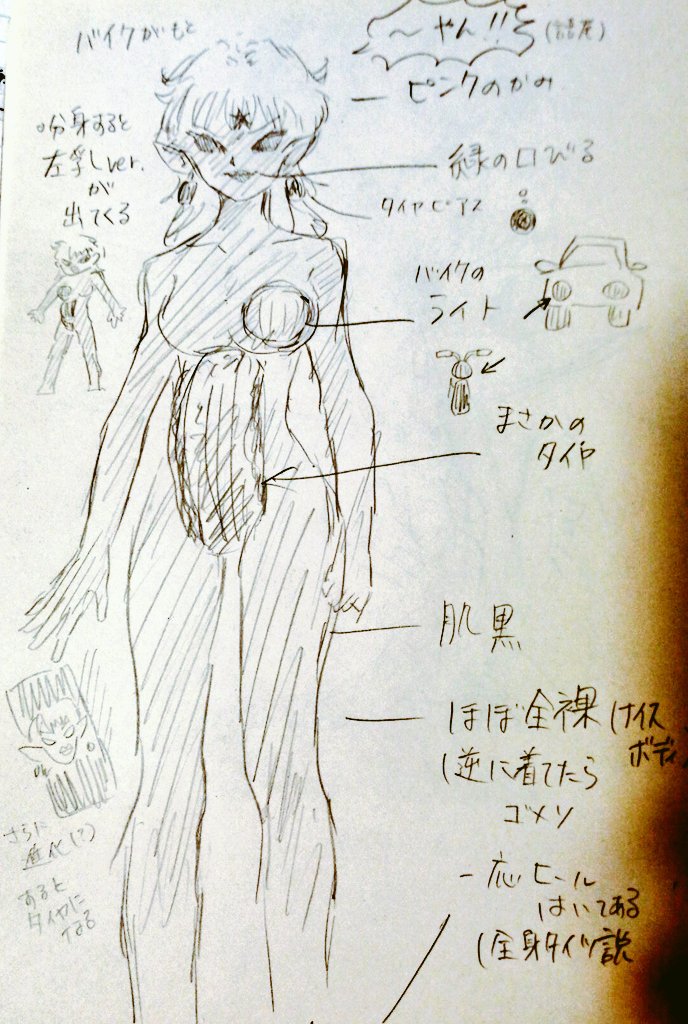 バイクがもと
〜やん!!
(語尾)
ピンクのかみ
分身すると
左乳しver.
が
出てくる
緑の口びる
タイヤピアス
バイクの
ライト
まさかの
タイヤ
肌黒
ほぼ全裸(ナイス
ボディ)
(逆に着てたら
ゴメン
一応ヒール
はいてある
(全身タイツ説
さらに
進化(?)
すると
タイヤに
なる